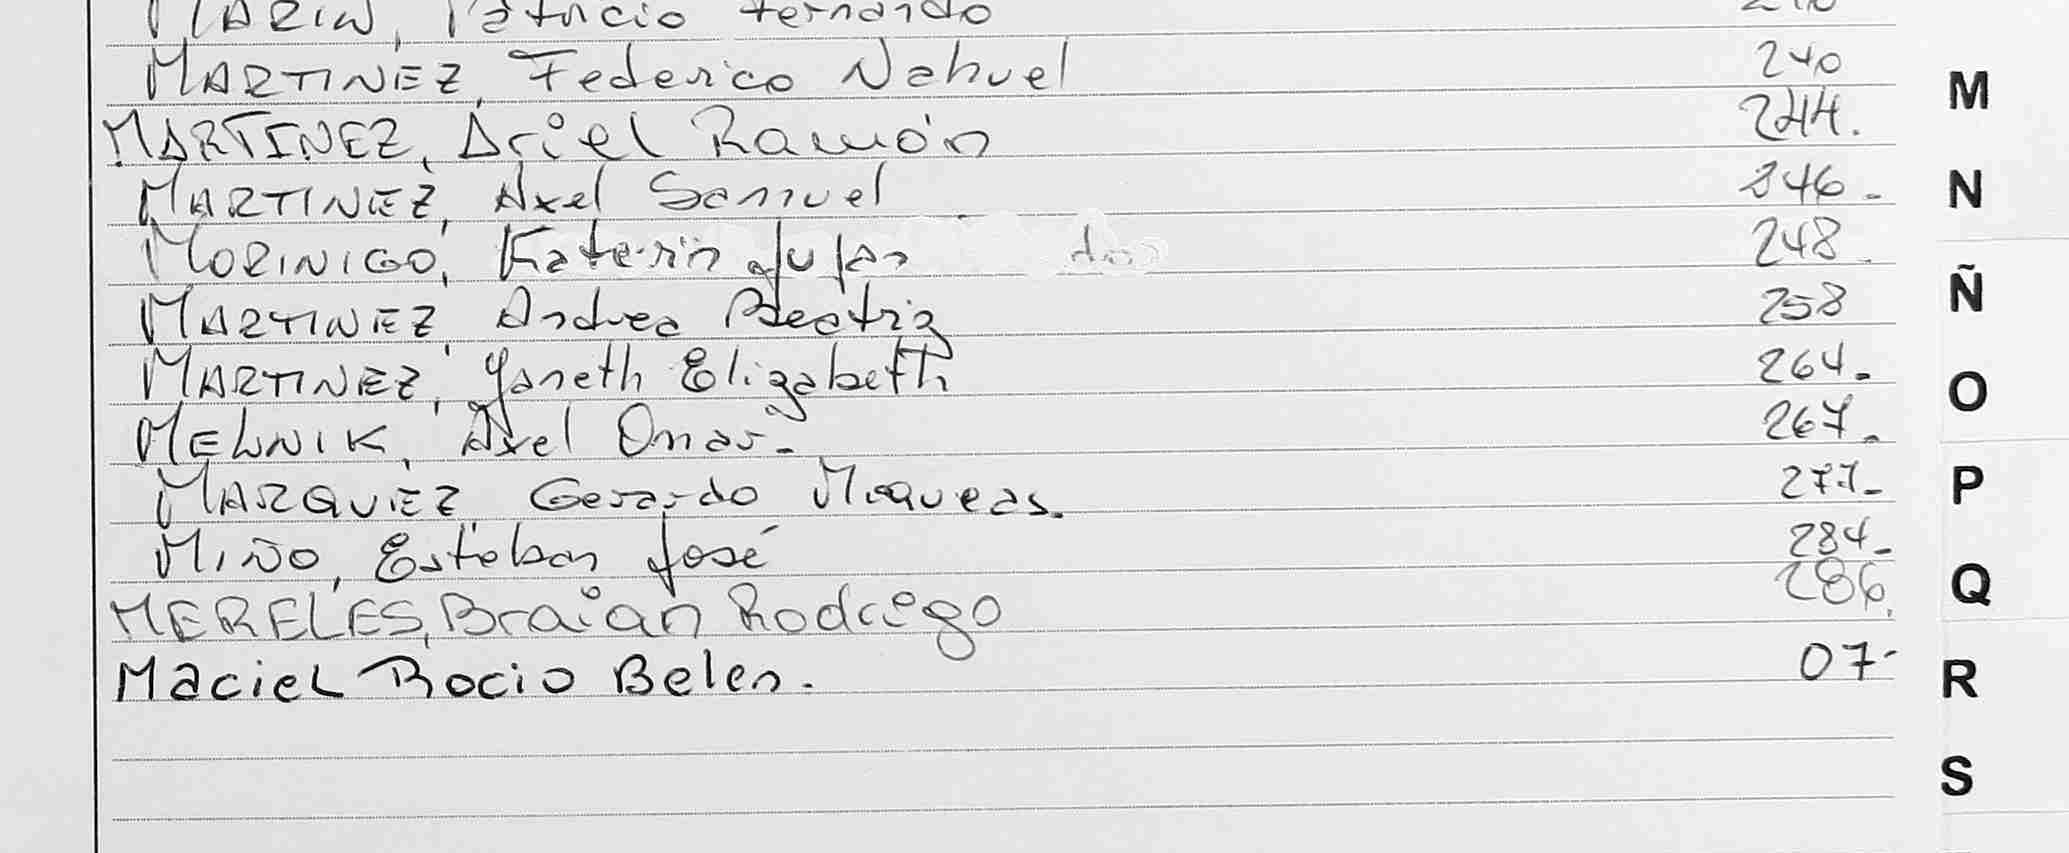 MARIN, Patricio Fernando
MARTINEZ, Federico Nahuel 240
MARTINEZ, Ariel Ramón 244.
MARTINEZ, Axel Samuel 246-
MORINIGO, Katerin 248.
MARTINEZ, Andrea Beatriz 258
MARTINEZ, Yaneth Elizabeth 264-
MELNIK, Axel Omar- 267-
MARQUEZ, Gerardo 277-
MIÑO, Esteban José 284-
MERELES, Braian Rodrigo 286.
Maciel Rocio Belen. 07-
M
N
Ñ
O
P
Q
R
S